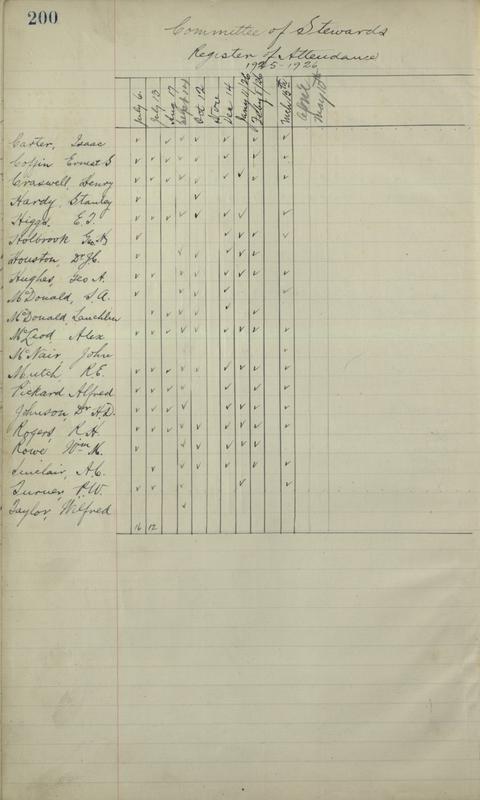 200
Committee of Stewards
Register of Attendance
1925-1926
July 6. July 13 Aug 17 Sept 14 Oct 12 Nov Dec 14 Jany 11/26 Feby 8/26 Mch 15th April May 10th
Carter, Isaac
Coffin Ernest S
Craswell, Henry
Hardy, Stanley
Higgs. E.T.
Holbrook Geo H
Houston, Dr J.C.
Hughes, Geo A.
McDonald, S.A.
McDonald, Lauchlan
McLeod, Alex
McNair, John
Mutch, R.E.
Pickard Alfred
Johnson, Dr H.D.
Rogers, R.H.
Rowe Wm K.
Sinclair, A.C.
Turner, P.W.
Taylor, Wilfred
16 12